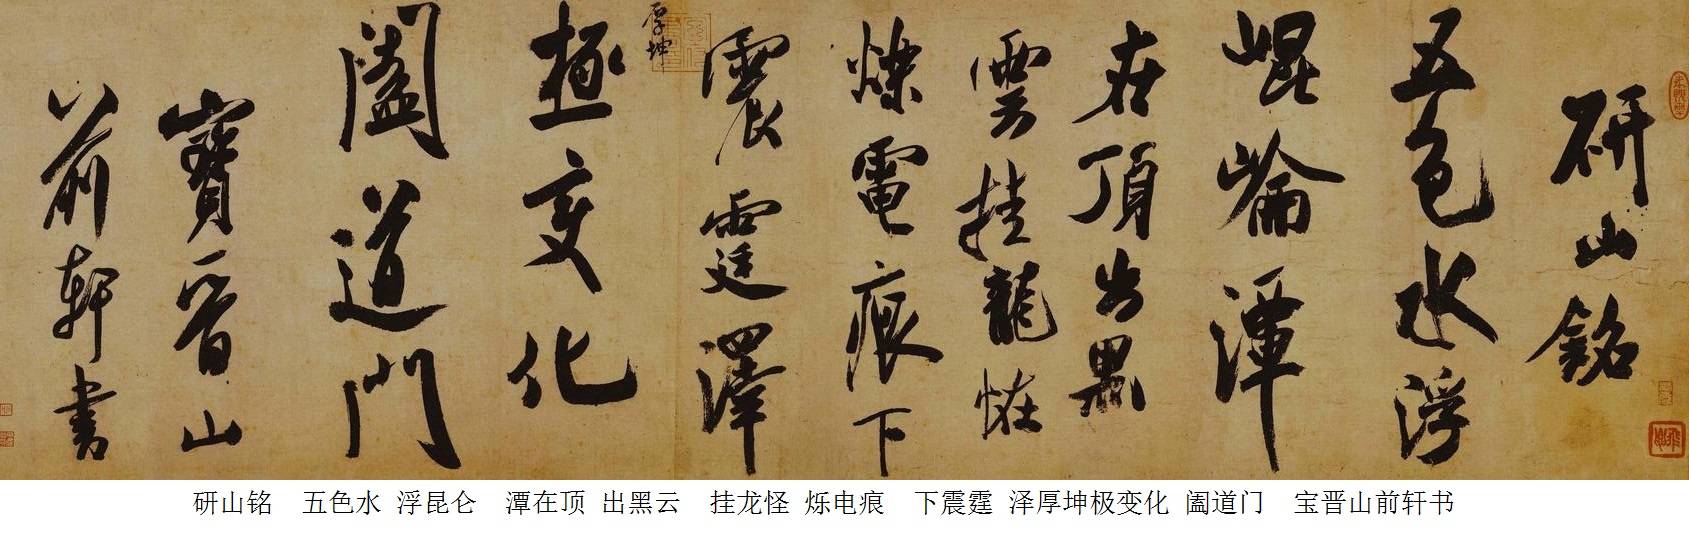 研山銘
五色水浮
崐崘潭
在頂出黑
雲挂龍恠
爍電痕下
震霆澤
厚坤
極變化
闔道門
寶晉山
前軒書
研山铭 五色水 浮昆仑 潭在顶 出黑云 挂龙怪 烁电痕 下震霆 泽厚坤极变化 阖道门 宝晋山前轩书